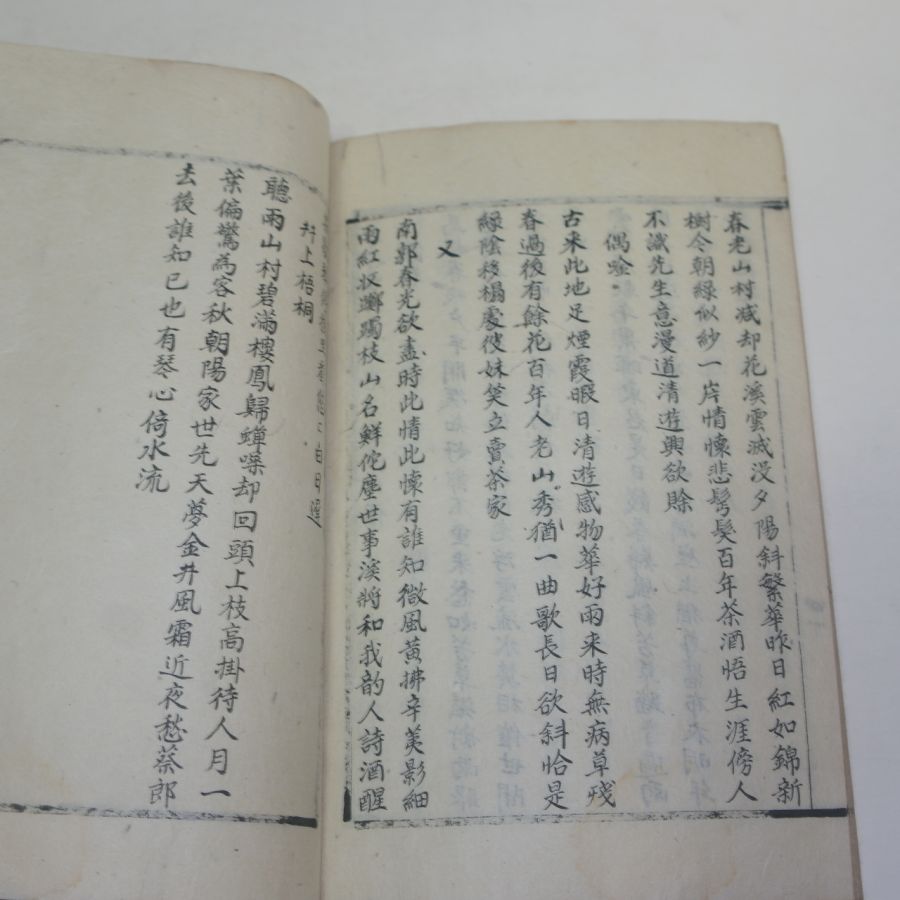 春老山村減却花溪雲滅没夕陽斜繁華昨日紅如錦新
樹今朝綠似紗一岸情懷悲鬂髮百年茶酒悟生涯傍人
不識先生意漫道清遊興欲賖
偶唫
古来此地足煙霞暇日清遊感物華好雨来時無病草残
春過後有餘花百年人老山秀猶一曲歌長日欲斜恰是
綠陰移榻處彼妹笑立賣茶家
又
南郭春光欲盡時此情此懷有誰知微風黄拂辛荑影細
雨紅收躑躅枝山名鮮佗塵世事溪將和我韵人詩酒醒
井上梧桐
聽雨山村碧滿樓鳳歸蟬噪却回頭上枝高掛待人月一
葉偏驚為客秋朝陽家世先天夢金井風霜近夜愁蔡郎
去後誰知已也有琴心倚水流